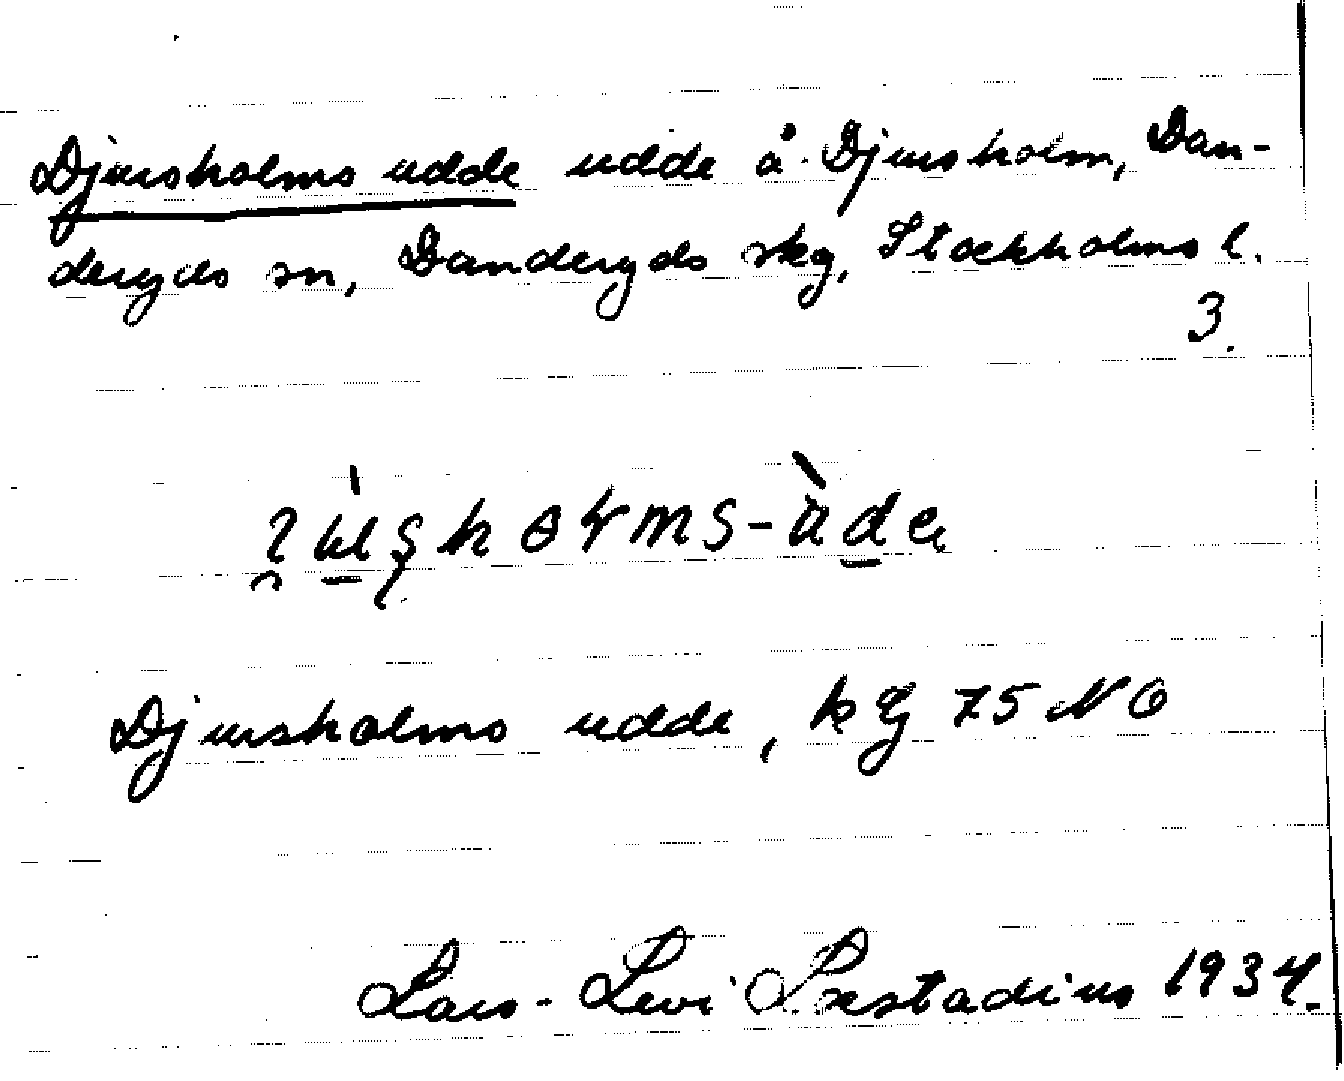 Djursholms udde udde å Djursholm, Dan-
deryds sn, Danderyds skg, Stockholms l.
3.
Djursholms udde, k G 75 NO
Lars-Levi Læstadius 1934.